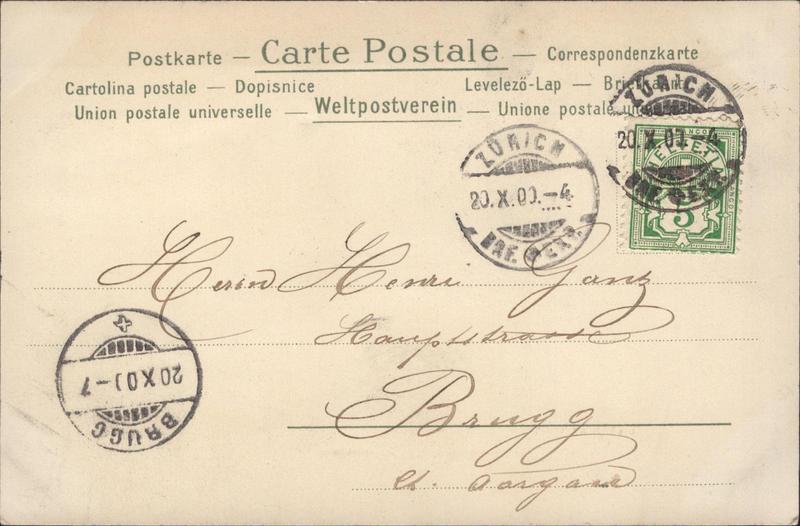 Postkarte — Carte Postale — Correspondenzkarte
Cartolina postale — Dopisnice Levelező-Lap — Briefkaart
Union postale universelle — Weltpostverein — Unione postale
ZÜRICH
20.X.00.-4
BRF. EXP.
ZÜRICH
20.X.00.-4
BRF. EXP.
HELVETIA
5
Herrn Henri Ganz
Hauptstrasse
Brugg
Ct. Aargau
BRUGG
20.X.00.-7